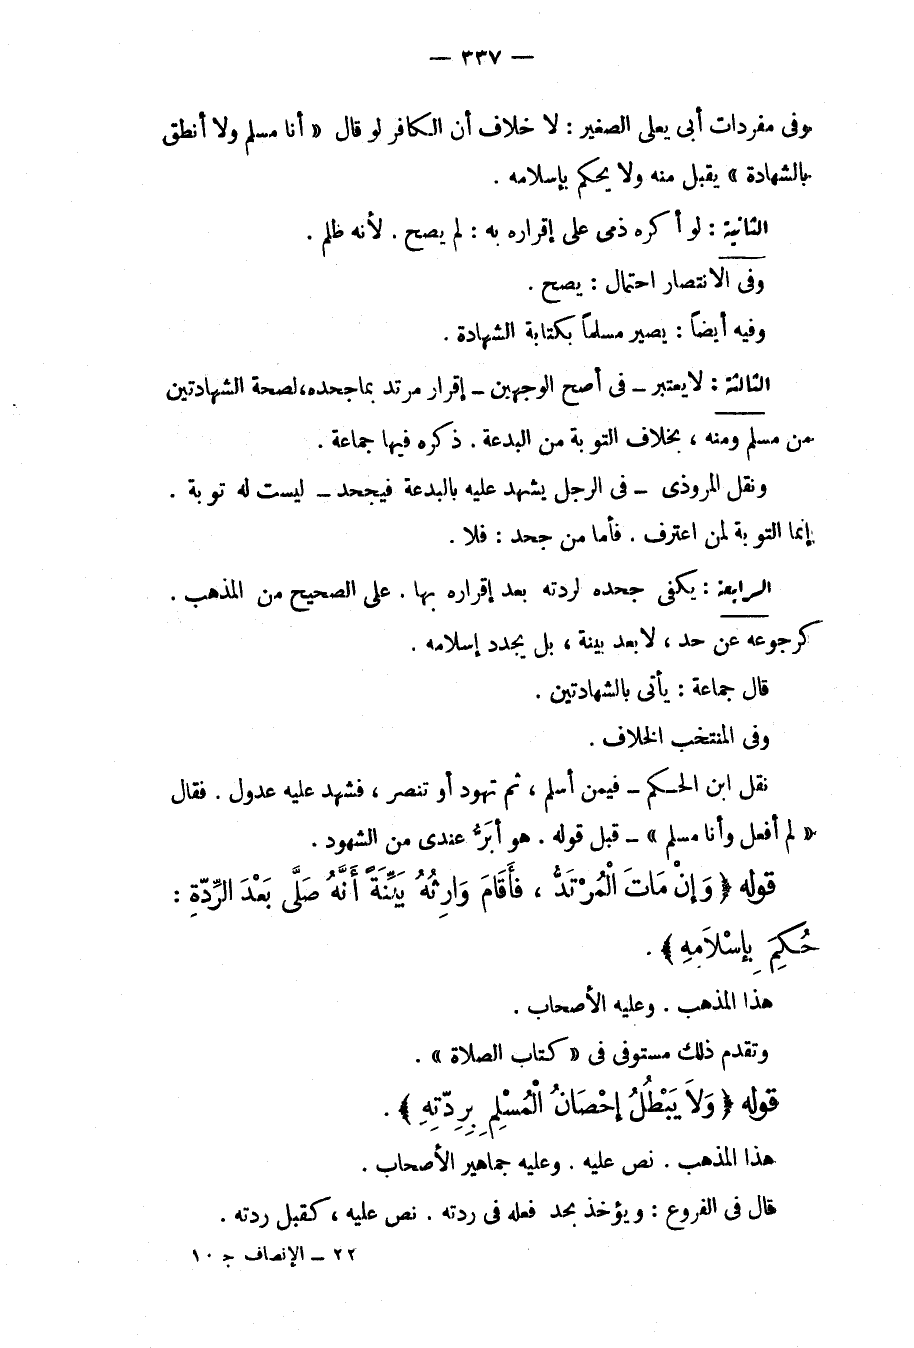 — ٣٣٧ —
وفى مفردات أبى يعلى الصغير : لا خلاف أن الكافر لو قال « أنا مسلم ولا أنطق
بالشهادة » يقبل منه ولا يحكم بإسلامه .
الثانية : لو أكره ذمى على إقراره به : لم يصح . لأنه ظلم .
وفى الانتصار احتمال : يصح .
وفيه أيضاً : يصير مسلماً بكتابة الشهادة .
الثالثة : لا يعتبر ــ فى أصح الوجهين ــ إقرار مرتد بما جحده، لصحة الشهادتين
من مسلم ومنه ، بخلاف التوبة من البدعة . ذكره فيها جماعة .
ونقل المروذى ــ فى الرجل يشهد عليه بالبدعة فيجحد ــ ليست له توبة .
إنما التوبة لمن اعترف . فأما من جحد : فلا .
الرابعة : يكفى جحده لردته بعد إقراره بها . على الصحيح من المذهب .
كرجوعه عن حد ، لا بعد بينة ، بل يجدد إسلامه .
قال جماعة : يأتى بالشهادتين .
وفى المنتخب الخلاف .
نقل ابن الحكم ــ فيمن أسلم ، ثم تهود أو تنصر ، فشهد عليه عدول . فقال
« لم أفعل وأنا مسلم » ــ قبل قوله . هو أَبَرُّ عندى من الشهود .
قوله ﴿ وَإِنْ مَاتَ الْمُرْتَدُّ ، فأَقَامَ وَارِثُهُ بَيِّنَةً أَنَّهُ صَلَّى بَعْدَ الرِّدّةِ :
حُكِمَ بِإسْلَامِهِ ﴾ .
هذا المذهب . وعليه الأصحاب .
وتقدم ذلك مستوفى فى « كتاب الصلاة » .
قوله ﴿ وَلَا يَبْطُلُ إحْصَانُ الْمُسْلِمِ بِرِدّتِهِ ﴾ .
هذا المذهب . نص عليه . وعليه جماهير الأصحاب .
قال فى الفروع : ويؤخذ بحد فعله فى ردته . نص عليه ، كقبل ردته .
٢٢ ــ الإنصاف ج ١٠